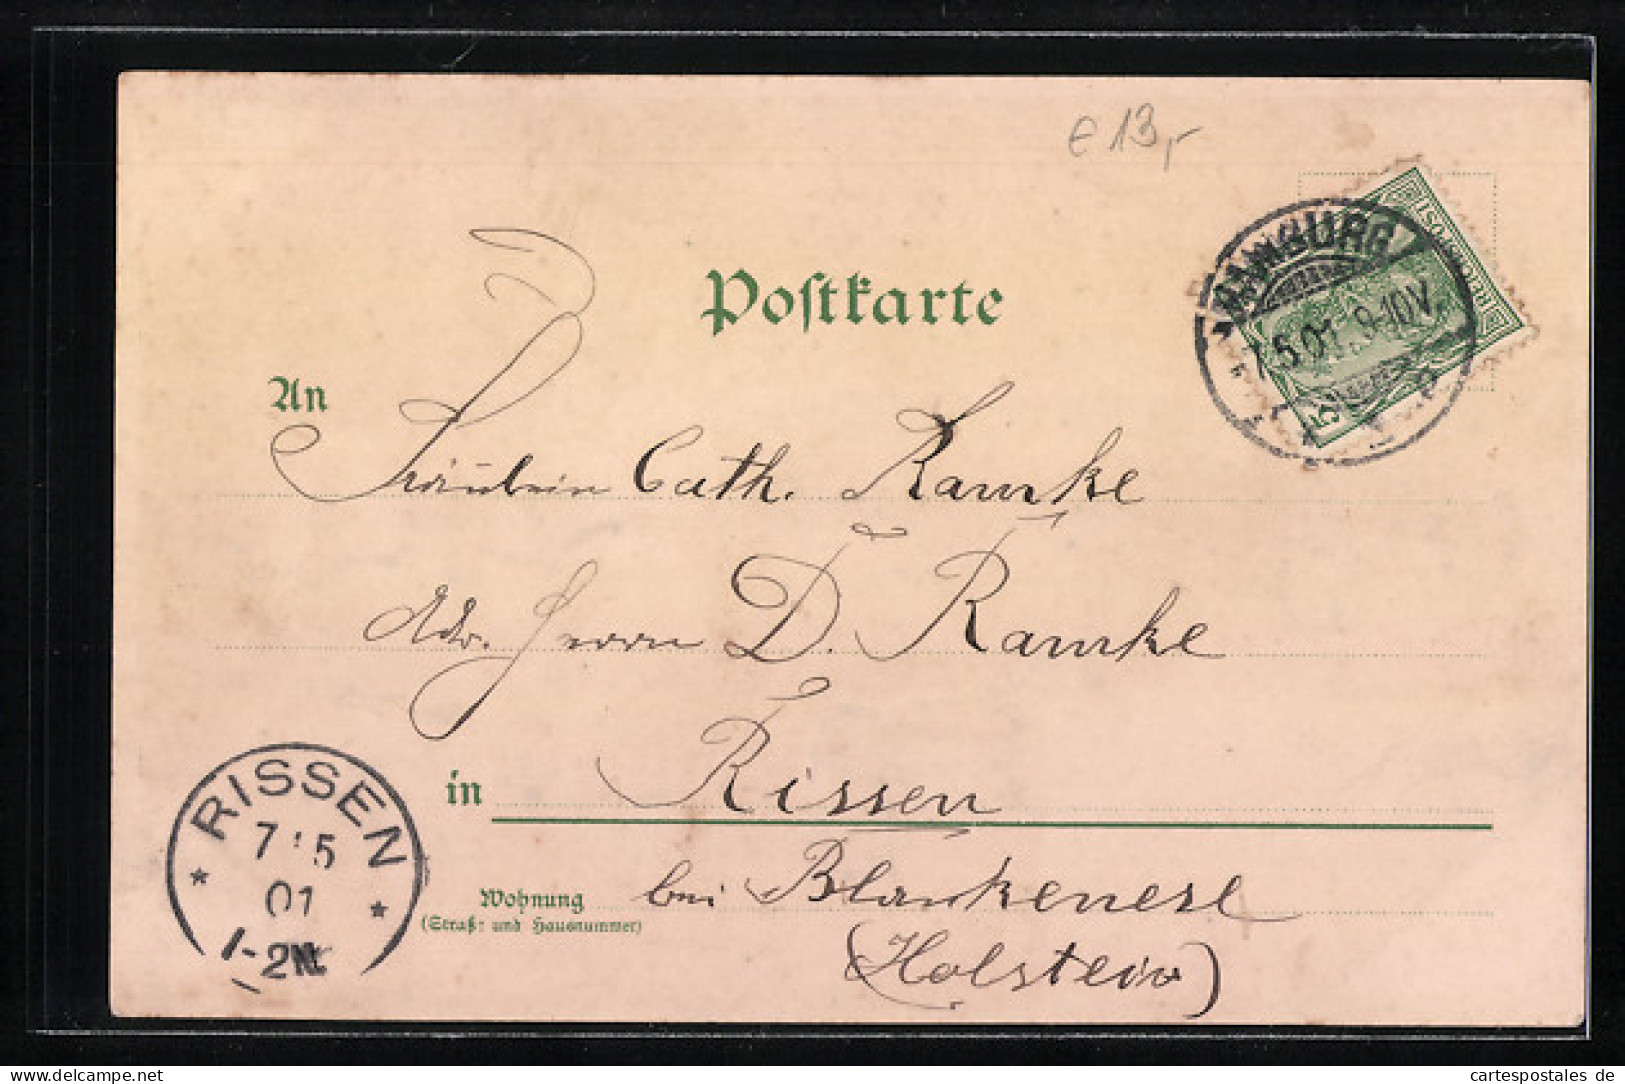 e 13,-
Postkarte
HAMBURG
7.5.01. 9-10V.
REICHSPOST
5
An
Fräulein Cath. Ramke
Adr. Herrn D. Ramke
in Rissen
Wohnung
(Straße und Hausnummer)
bei Blankenese
(Holstein)
* RISSEN *
7 5
01
1-2N
cartespostales de